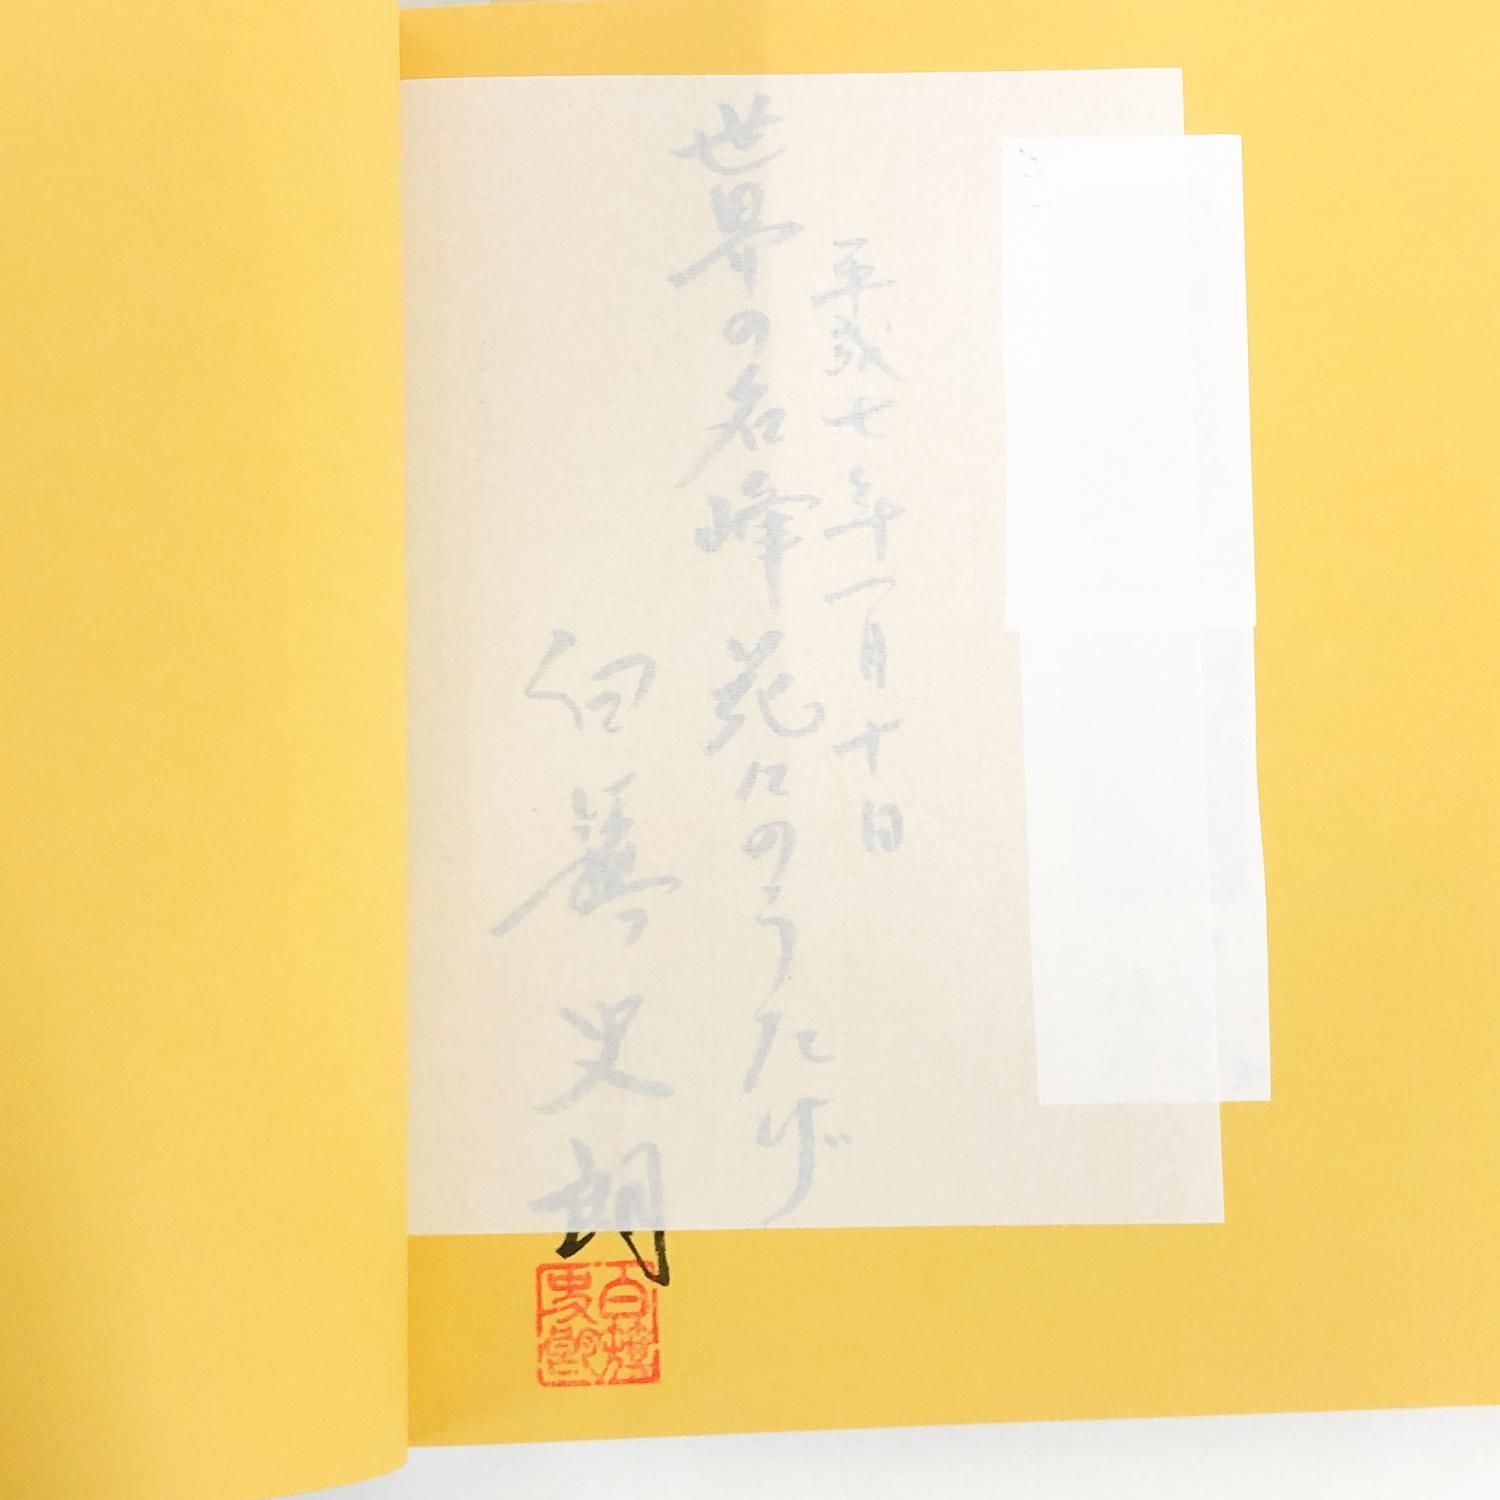 平成七年一月十日
世界の名峰 花々のうたげ
白籏史朗
白籏
史朗